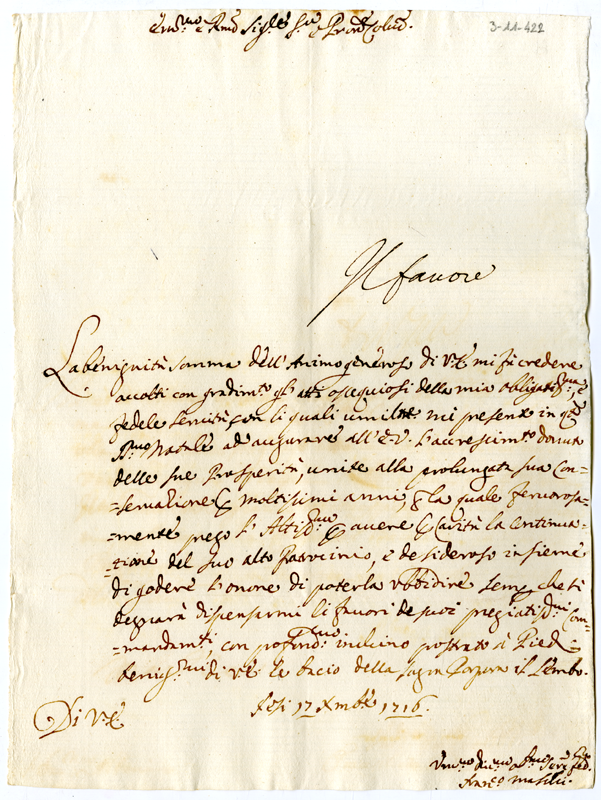 Em.mo e Rmo Sig.re S.re e Pron Col.mo.
3-11-422
Il favore
La benignità somma dell'Animo generoso di V.E. mi fà credere
accolti con gradim.to gli atti ossequiosi della mia obligatis.ma, e
fedele servitù, con li quali umilm.te mi presento in q.to
S.mo Natale ad augurare all'E.V. l'accrescim.to
delle sue Prosperità, unite alla prolungata sua Con=
=servazione moltissimi anni, la quale fervorosa=
=mente prego l'Altis.mo avere la Continua=
=tione del suo alto Patrocinio, e desideroso insieme
di godere l'onore di poterla ubbidire sem che si
degnarà dispensarmi li favori de suoi pregiatis.mi Com=
=mandam.ti, con profond.mo inchino prostrato à Piedi
benig.mi di V.E. le bacio della Porpora il Lembo.
Jesi 17 Xmbre 1716.
Di V.E.
Um.mo
Fran.co